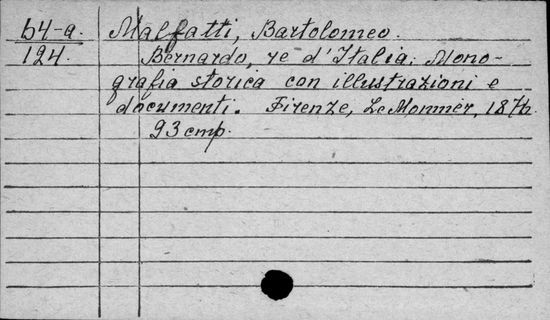 64-a.
124.
Malfatti, Bartolomeo.
Bernardo, re d'Italia. Mono-
grafia storica con illustrazioni e
documenti. Firenze, Le Monnier, 1876.
93 cmp.